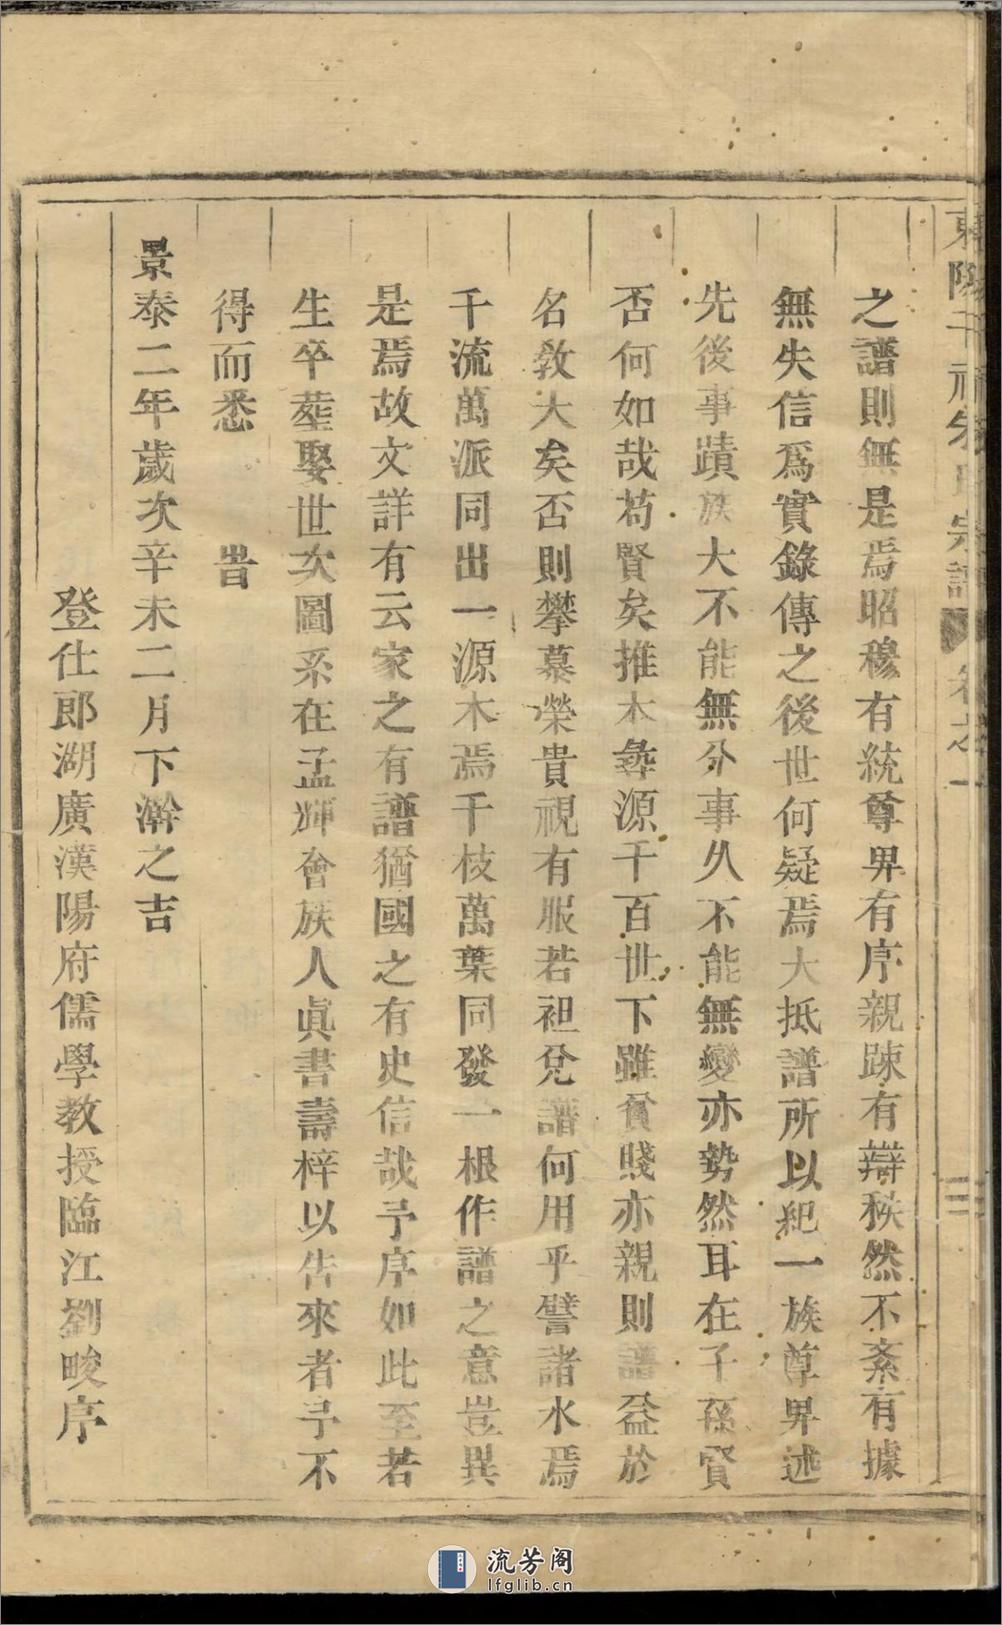 東陽干祥宋氏宗譜 卷之一 三
之譜則無是焉昭穆有統尊畀有序親踈有辯秩然不紊有據
無失信爲實錄傳之後世何疑焉大抵譜所以紀一族尊畀述
先後事蹟族大不能無分事久不能無變亦勢然耳在子孫賢
否何如哉苟賢矣推木彝源千百世下雖貧賤亦親則譜益於
名敎大矣否則攀慕榮貴視有服若袒免譜何用乎譬諸水焉
千流萬派同出一源木焉千枝萬葉同發一根作譜之意豈異
是焉故文詳有云家之有譜猶國之有史信哉予序如此至若
生卒塟娶世次圖系在孟輝會族人眞書壽梓以告來者予不
得而悉 旹
景泰二年歲次辛未二月下澣之吉
登仕郎湖廣漢陽府儒學教授臨江劉畯序
流芳阁
lfglib.cn